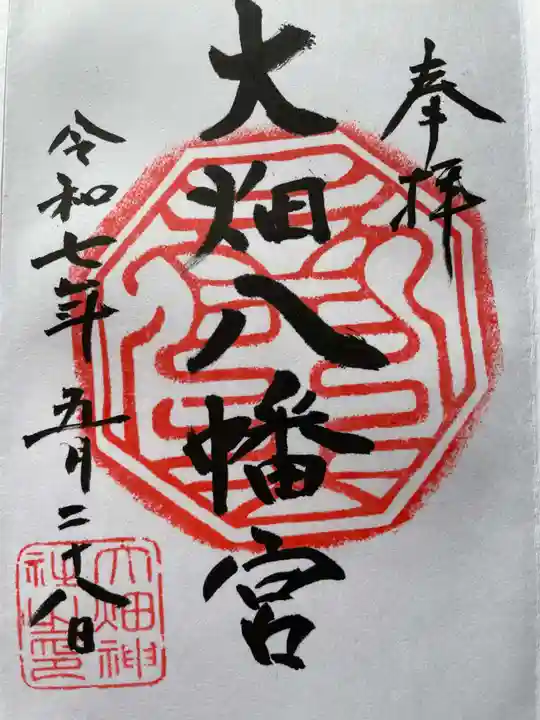 奉拝
大畑八幡宮
令和七年 五月二十八日
大畑神社之印